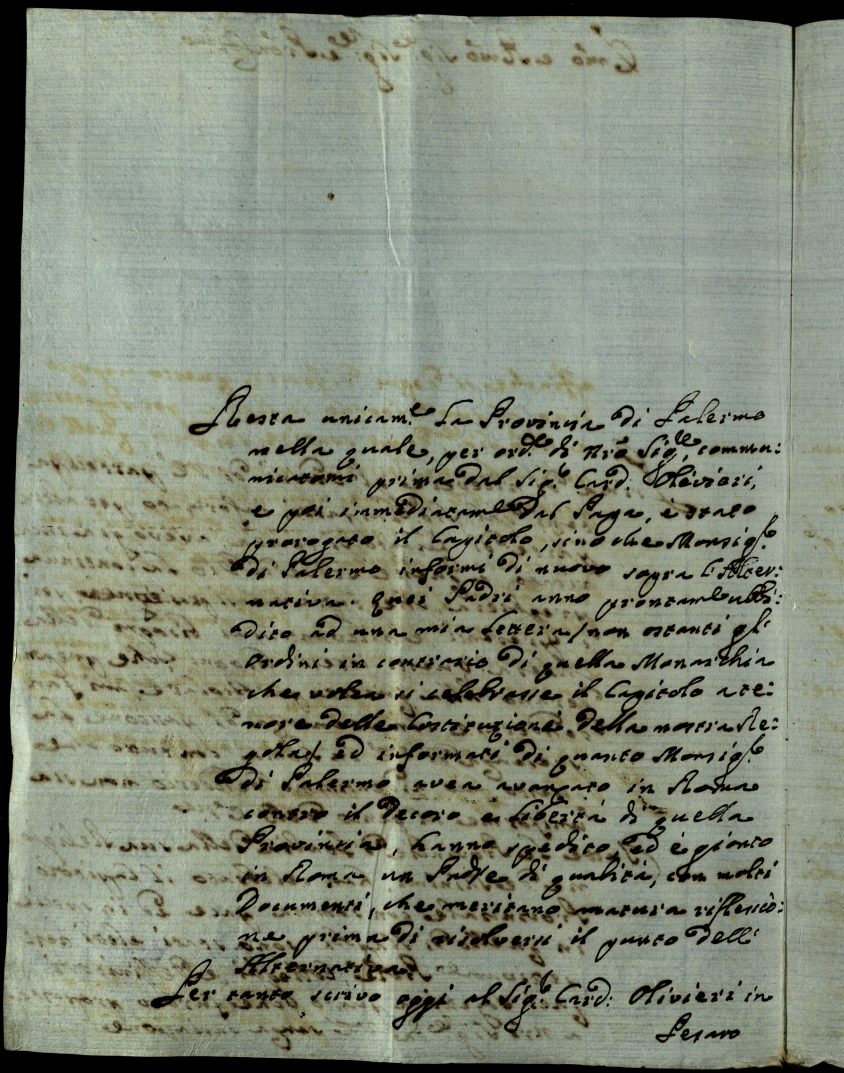 Resta unicam.e la Provincia di Palermo
nella quale, per ord.e di Nrō Sig.re, commu:
nicatomi prima dal Sig.r Card. Olivieri,
e poi immediatam.e dal Papa, è stato
prorogato il Capitolo, sino che Monsig.r
di Palermo informi di nuovo sopra l'Alter:
nativa. Quei Padri anno prontam.e ubbi:
dito ad una mia lettera/non ostanti gl'
ordini in contrario di quella Monarchia
che volea si celebrasse il Capitolo a te:
nore delle Costituzione della nostra Re:
gola/ ed informati di quanto Monsig.r
di Palermo avea avanzato in Roma
contro il Decoro e libertà di quella
Provincia, hanno spedito, ed è gionto
in Roma un Padre di qualità, con molti
Documenti, che meritano matura riflessio:
ne prima di risolversi il punto dell'
Alternativa.
Per tanto scrivo oggi al Sig.r Card: Olivieri in
Pesaro